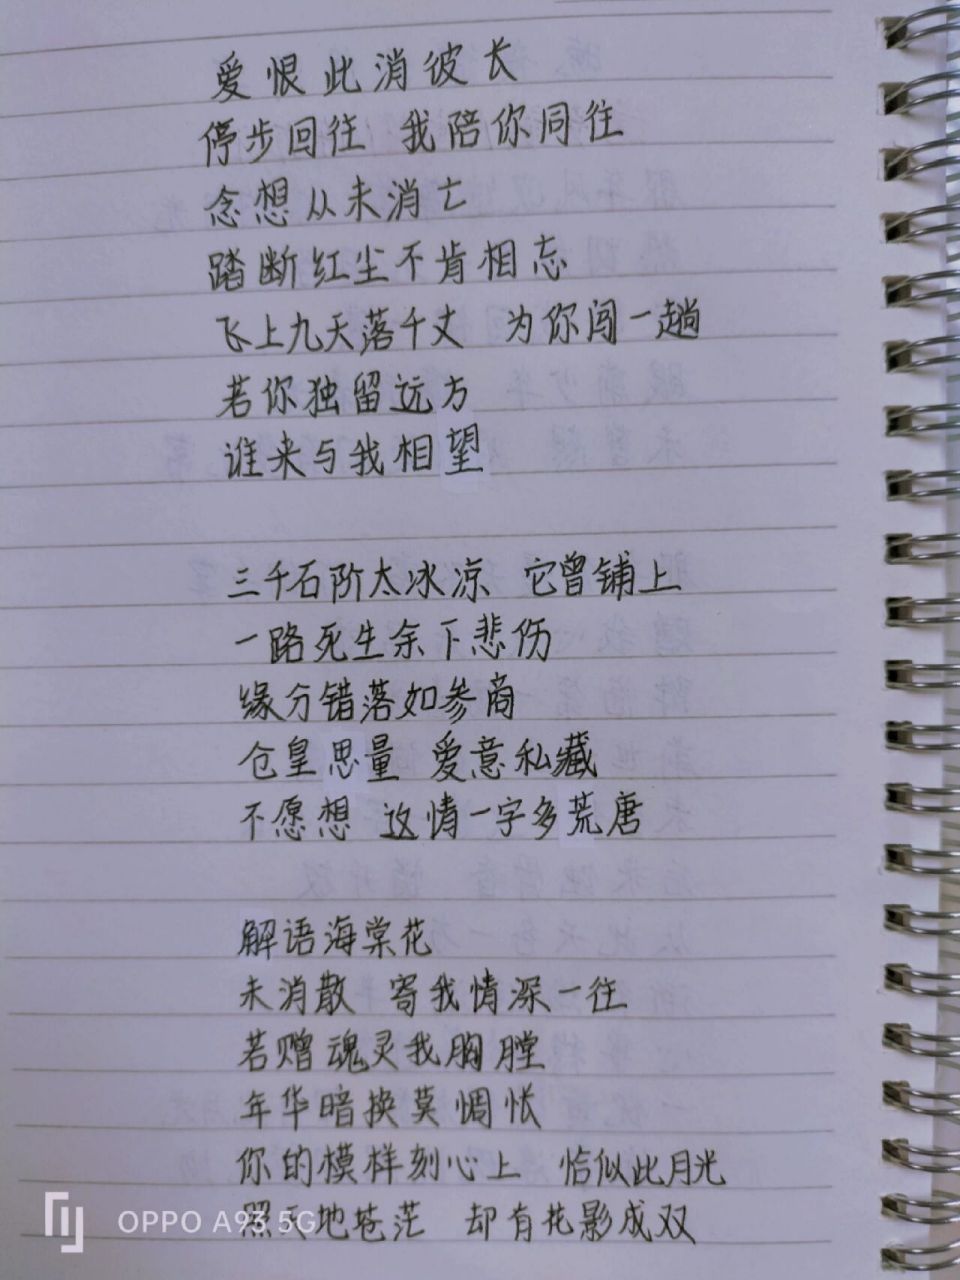 爱恨此消彼长
停步回往 我陪你同往
念想从未消亡
踏断红尘不肯相忘
飞上九天落千丈 为你闯一趟
若你独留远方
谁来与我相望
三千石阶太冰凉 它曾铺上
一路死生余下悲伤
缘分错落如参商
仓皇思量 爱意私藏
不愿想 这情一字多荒唐
解语海棠花
未消散 寄我情深一往
若赠魂灵我胸膛
年华暗换莫惆怅
你的模样刻心上 恰似此月光
照天地苍茫 却有花影成双
OPPO A93 5G